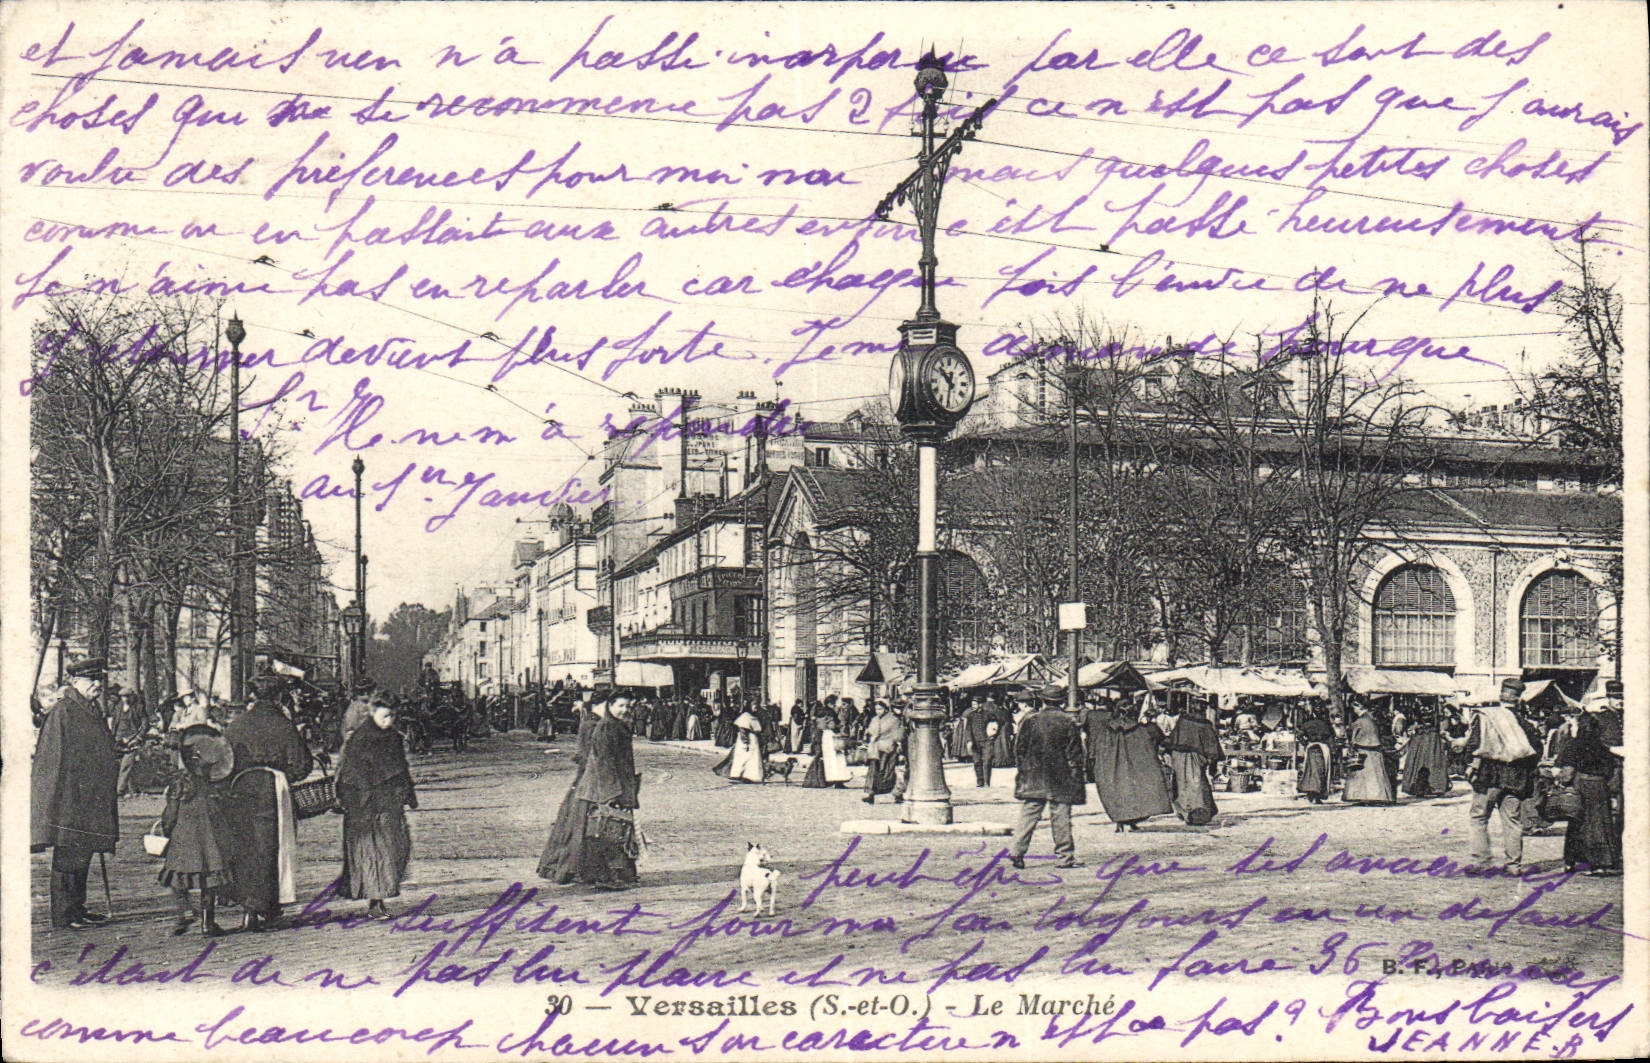 et jamais rien n'a passé inaperçu par elle ce sont des
choses qui ne se recommence pas 2 fois ce n'est pas que j'aurais
voulu des préférences pour moi non mais quelques petites choses
comme on en passait aux autres enfin c'est passé heureusement
Je n'aime pas en reparler car chaque fois l'envie de ne plus
y retourner devient plus forte. Je me demande pourque
Mr He nem a répondre
au 1er Janvier.
peut être que ses anciennes
lui suffisent pour moi j'ai toujours eu un défaut
c'était de ne pas lui plaire et ne pas lui faire 36
B. F., PARIS
30 — Versailles (S.-et-O.) - Le Marché
comme beaucoup chacun son caractère n'est ce pas? Bons baisers
JEANNE.B